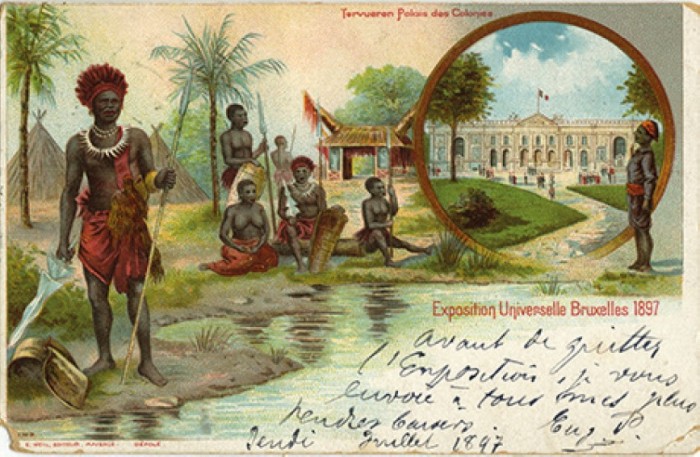 Tervueren Palais des Colonies
Exposition Universelle Bruxelles 1897
avant de quitter
l'Exposition, je vous
envoie à tous mes plus
tendres baisers. Eug. P.
Jendi Juillet 1897
E. WEIL, EDITEUR, MAYENCE. DÉPOSÉ.